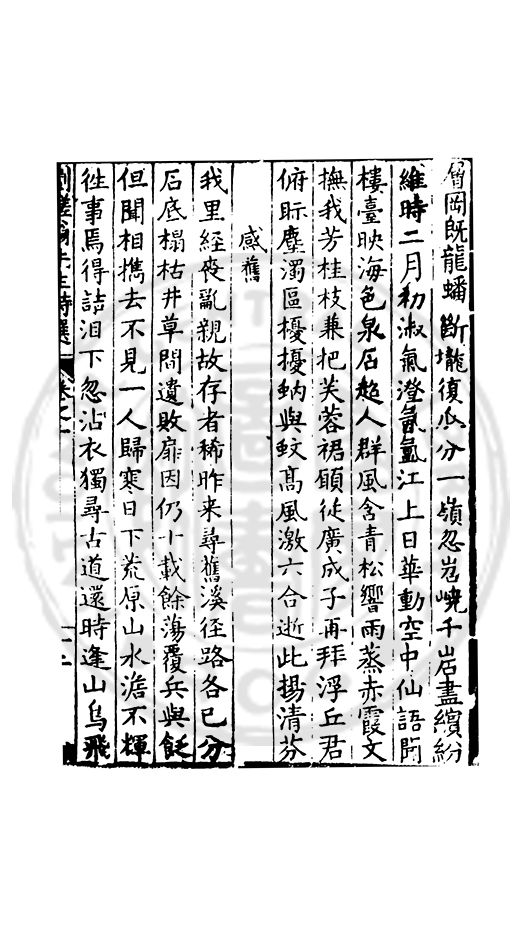 岡既龍蟠斷壠復瓜分一嶺忽岧嶢千岩盡繽紛
維時二月初淑氣澄氤氳江上日華動空中仙語聞
樓臺映海色泉石超人群風含青松響雨蒸赤霞文
撫我芳桂枝兼把芙蓉裙願從廣成子再拜浮丘君
俯眎塵濁區擾擾蚋與蚊髙風激六合逝此揚清芬
感舊
我里經喪亂親故存者稀昨来尋舊溪徑路各已分
石底榻枯井草間遺敗扉因仍十載餘蕩覆兵與飢
但聞相携去不見一人歸寒日下荒原山水澹不輝
徃事焉得詰泪下忽沾衣獨尋古道還時逢山烏飛
先生詩選 卷之一